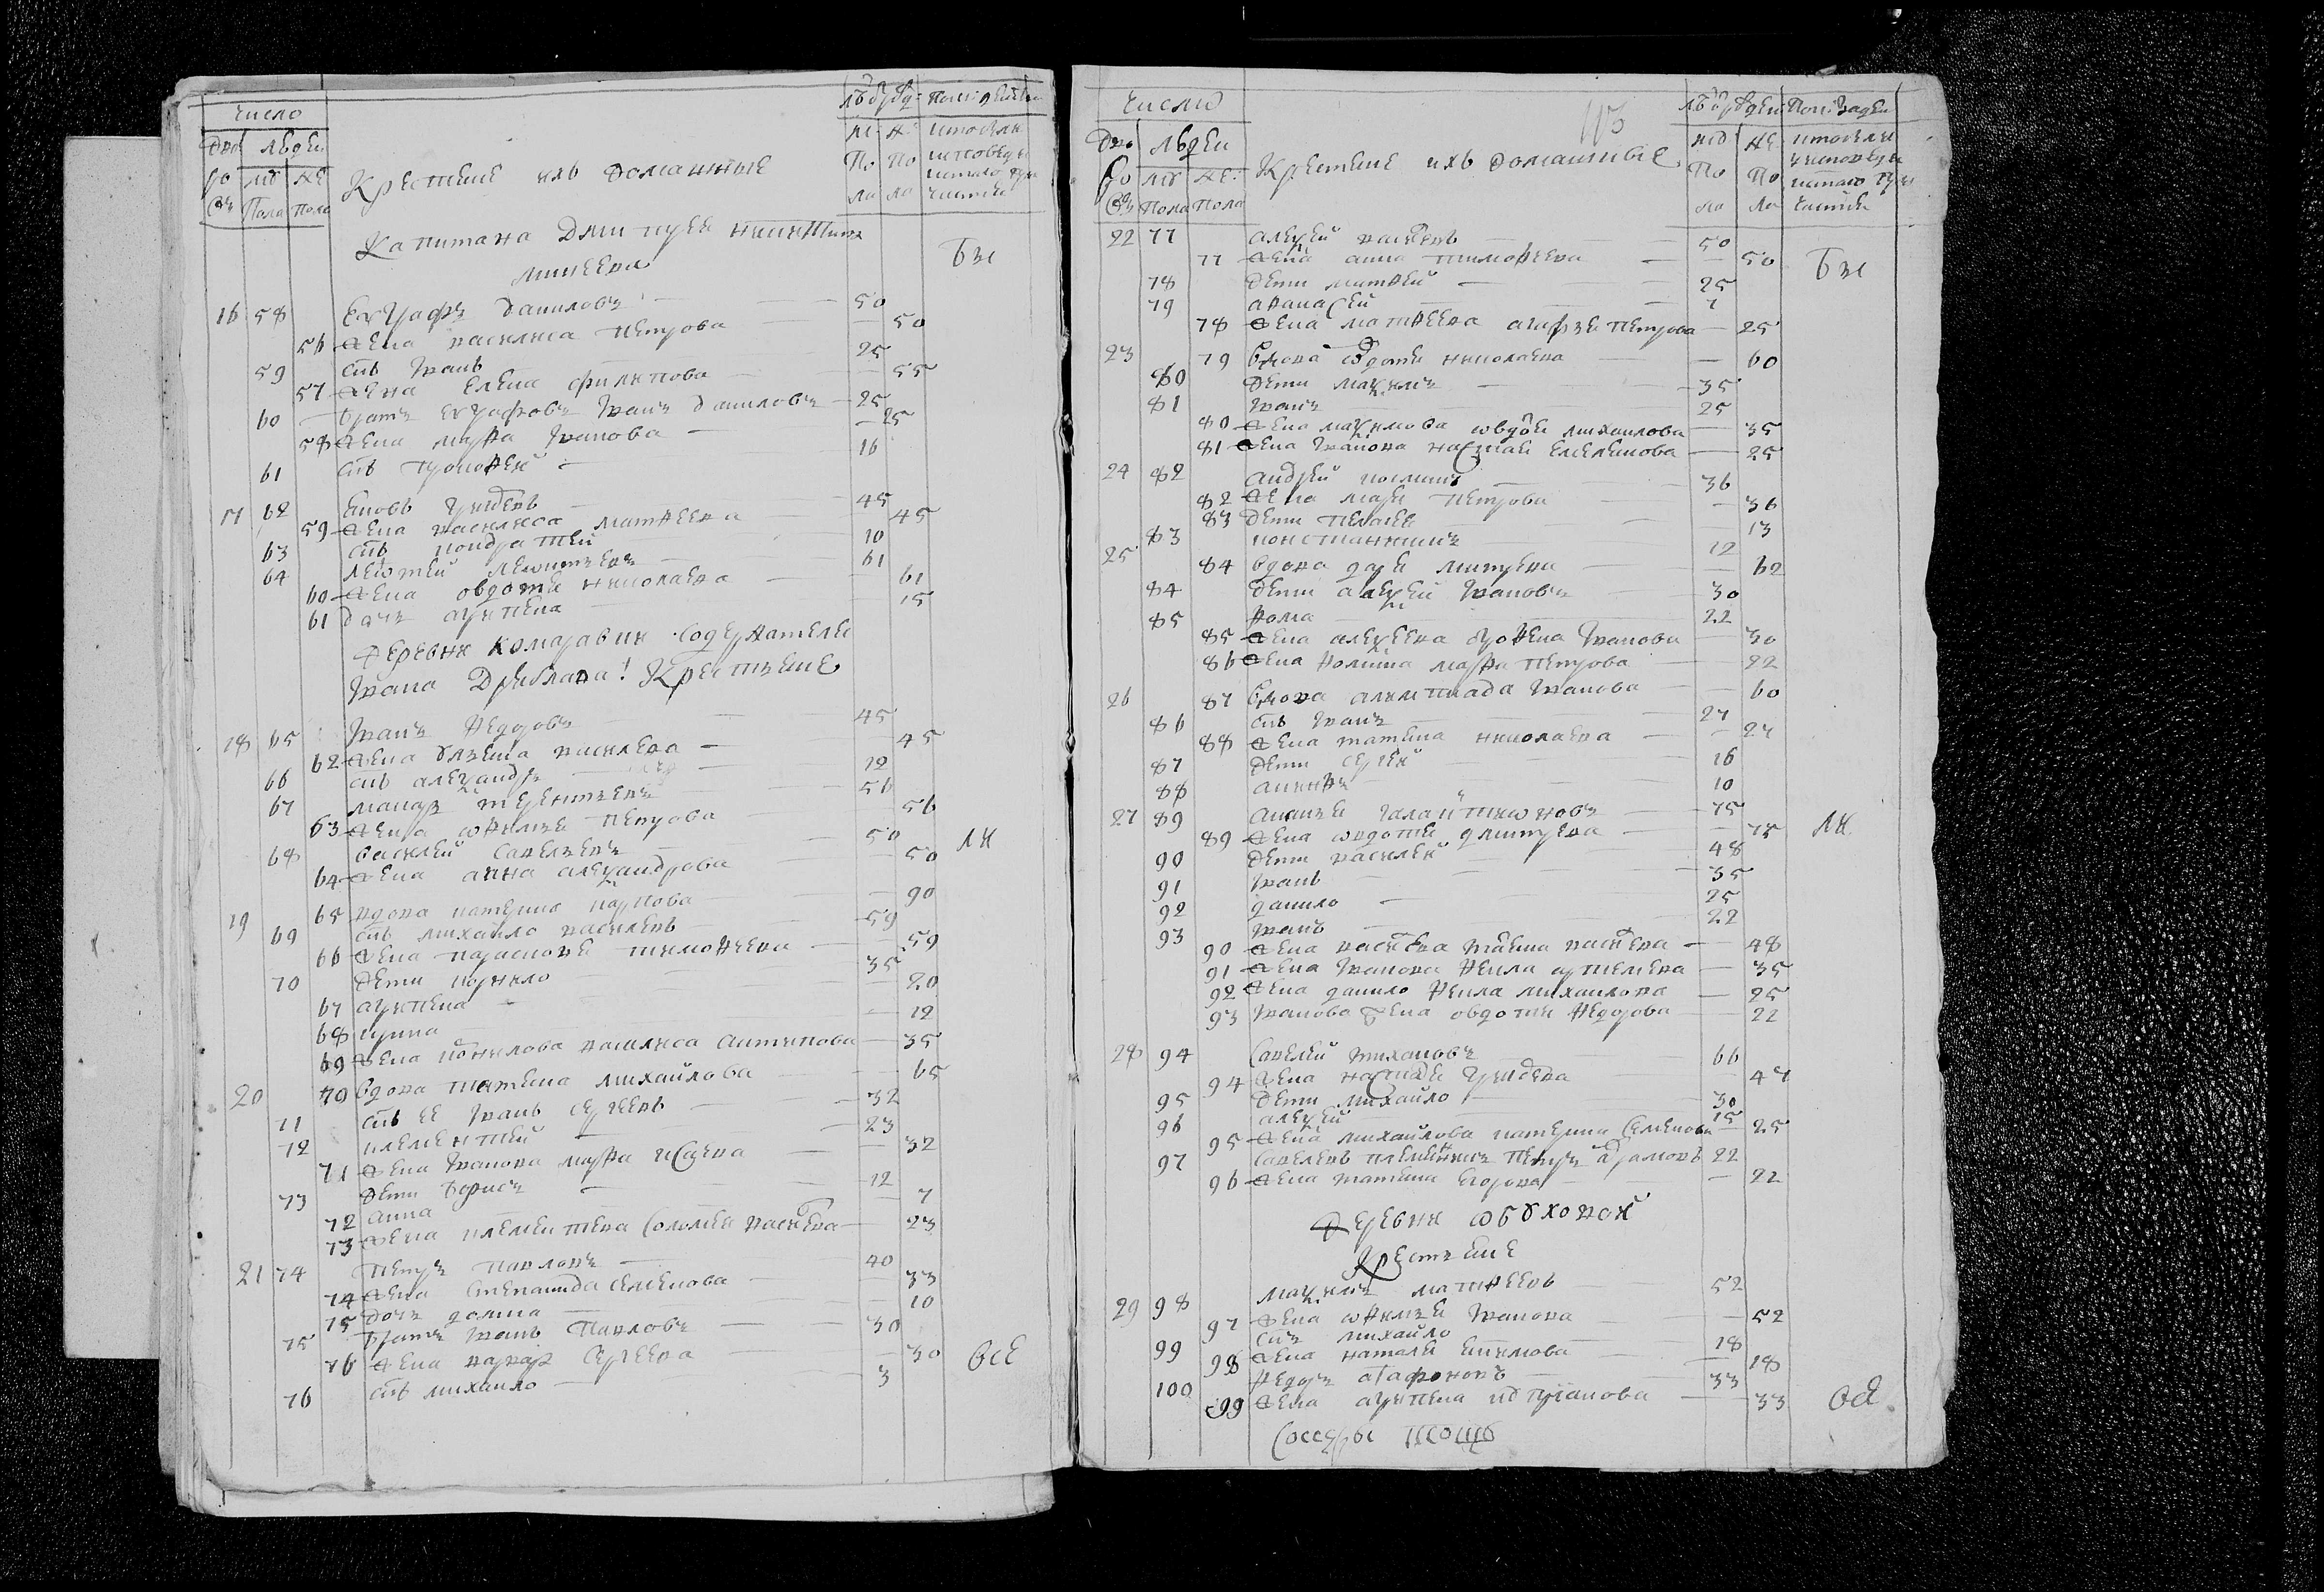 число
дво людеи
ро мỹ же
въ Пола пола
Крестяне ихъ домашные
м. ж.
По по
ла ла
Капитана Дмитрея Никитина
минеева
Бы
16 58 Евграфъ даниловъ 50
56 жена василиса петрова 50
59 снъ Иванъ 25
57 жена Елена филипова 55
60 братъ евграфовъ Иванъ даниловъ 25
58 жена марфа Иванова 25
61 снъ трофей 16
17 62 григоревъ 45
59 жена василиса матфеева 45
63 снъ кондратей 10
64 леонтей леонтьевъ 61
60 жена овдотя николаева 61
61 дочь агрипена 15
Деревни Комаравки Содержателя
Ивана Крестьяне
18 65 Иванъ Федоровъ 45
62 жена ульяна василева 45
66 снъ александръ 12
67 макаръ терентьевъ 56
63 жена офимья петрова 56
68 василей савельевъ 50
64 жена анна александрова 50
ли
19 65 вдова катерина карпова 90
69 снъ михайло василевъ 59
66 жена парасковя тимофеева 59
70 дети корнило 35
67 агрипена 20
68 ирина 12
69 жена корнилова василиса антипова 35
20 70 вдова татяна михайлова 65
71 снъ ее Иванъ сергеевъ 32
72 клементей 23
71 жена Иванова марфа исаева 32
73 дети борисъ 12
72 анна 7
73 жена клементева соломея василева 23
21 74 петръ павловъ 40
74 жена степанида семенова 33
75 дочь домна 10
75 братъ Иванъ Павловъ 30
76 жена варвара сергеева 30
76 снъ михаило 3
все
число
дво людеи
ро мỹ же
въ пола пола
Крестяне ихъ домашныѣ
115
муж же
По По
ла ла
22 77 алексей василевъ 50
77 жена анна тимофеева 50
Бы
78 дети матфей 25
79 афанасей 7
78 жена матфеева агафья петрова 25
23 79 вдова овдотя николаева 60
80 дети максимъ 35
81 Иванъ 25
80 жена максимова овдотя михаилова 35
81 жена Иванова настася емелянова 25
24 82 андрей козминъ 36
82 жена маря петрова 36
83 дети пелагея 13
83 константинъ 12
25 84 вдова даря митрева 62
84 дети алексей Ивановъ 30
85 фома 22
85 жена алексеева афросиня Иванова 30
86 жена фомина марфа петрова 22
26 87 вдова алимпиада Иванова 60
86 снъ Иванъ 27
88 жена татяна николаева 27
87 дети сергей 16
88 10
27 89 ананья галактионовъ 75
89 жена овдотя дмитрева 75
ли
90 дети василей 48
91 Иванъ 35
92 данило 25
93 Иванъ 22
90 жена василева татяна василева 48
91 жена Иванова фекла артемева 35
92 жена данило фекла михаилова 25
93 Иванова жена овдотя федорова 22
28 94 савелей михаловъ 66
94 жена настася григорева 47
95 дети михайло 30
96 алексей 15
95 жена михайлова катерина семенова 25
97 савелевъ племянникъ петръ абрамовъ 22
96 жена татяна егорова 22
Деревни обуховой
Крестьяне
29 98 максимъ матфеевъ 52
97 жена офимья Иванова 52
99 снъ михайло 18
98 жена наталя екимова 18
100 федоръ агафоновъ 33
99 жена агрипена куприанова 33
все